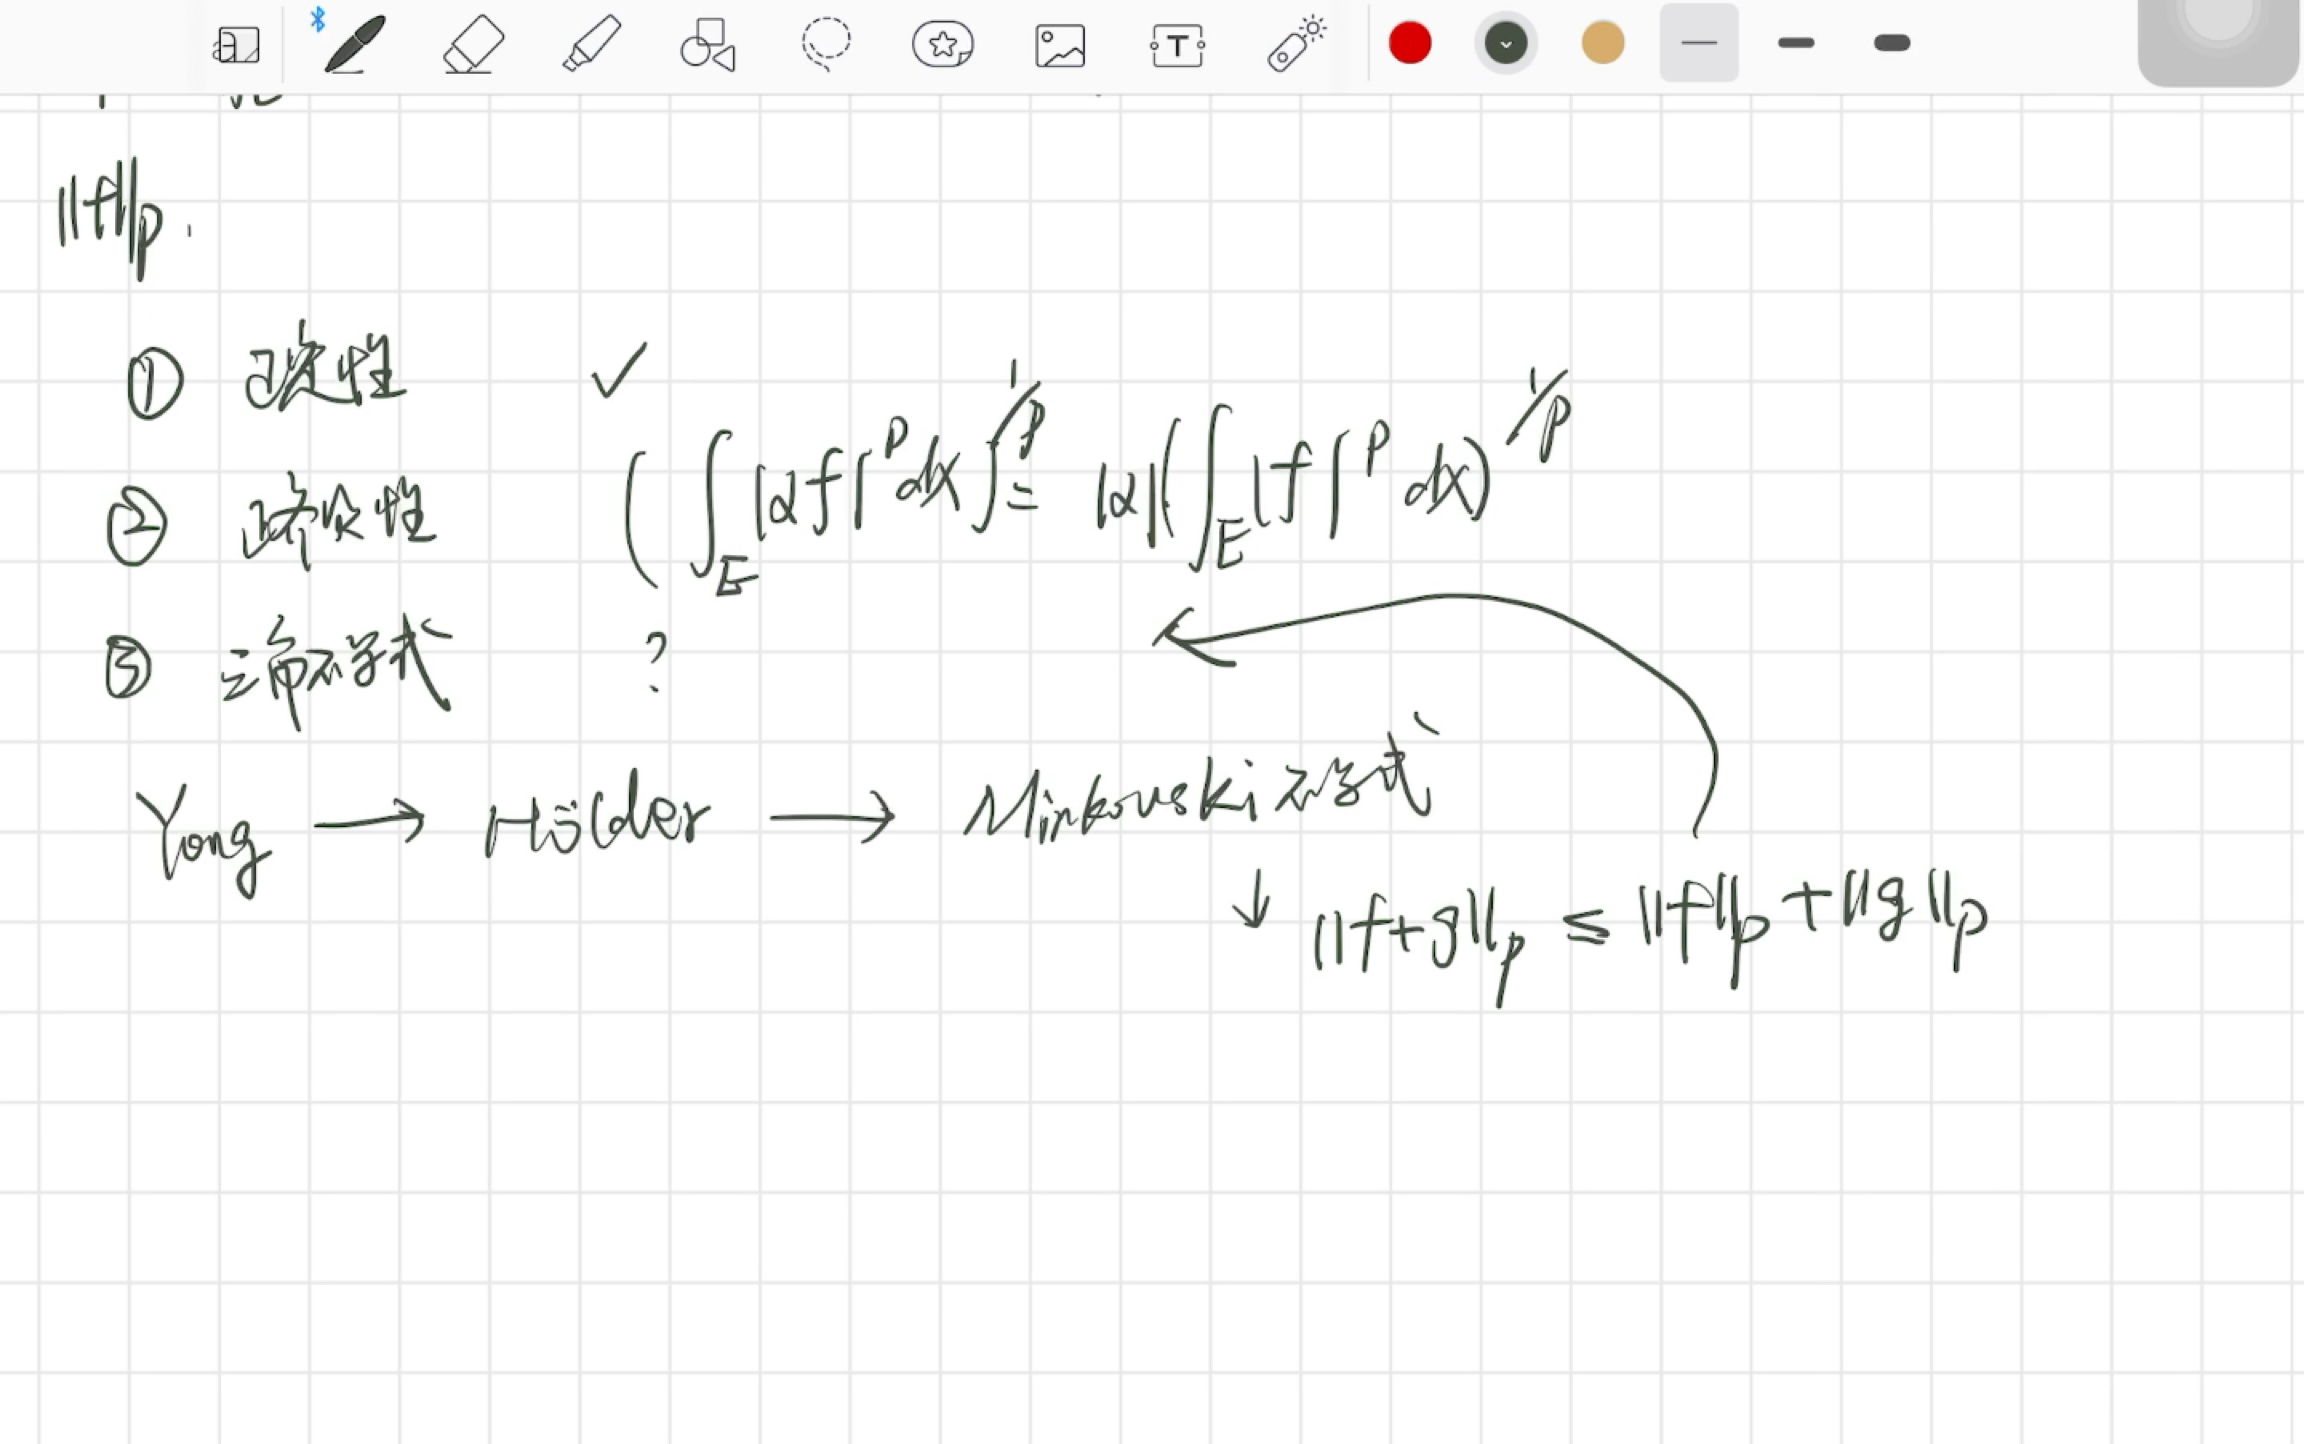 ||f||p.
① 正定性 ✓
② 正齐次性 (∫_E |αf|^p dx)^{1/p} = |α|(∫_E |f|^p dx)^{1/p}
③ 三角不等式 ?
Yong → Hölder → Minkowski 不等式
↓ ||f+g||p ≤ ||f||p + ||g||p